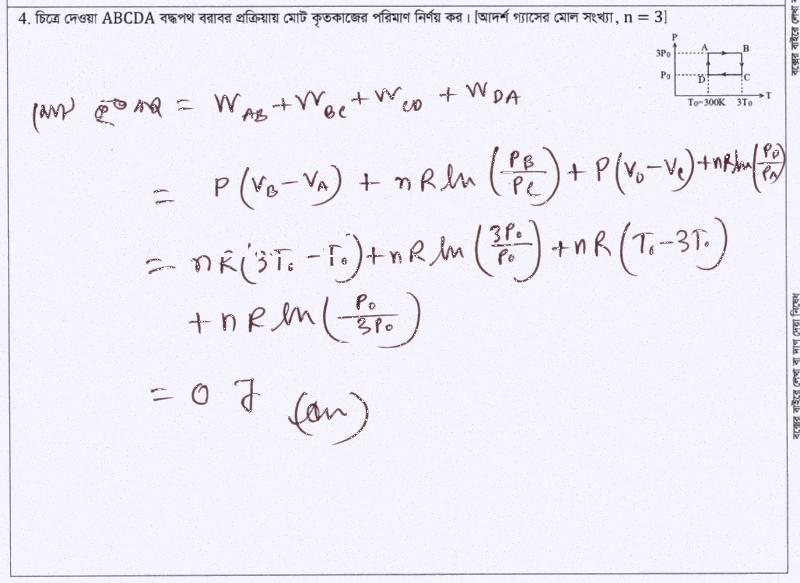 4. চিত্রে দেওয়া ABCDA বদ্ধপথ বরাবর প্রক্রিয়ায় মোট কৃতকাজের পরিমাণ নির্ণয় কর। [আদর্শ গ্যাসের মোল সংখ্যা, n = 3]
P
3P₀ A B
P₀ D C
T₀=300K 3T₀ T
মোট কৃতকাজ = W_AB + W_BC + W_CD + W_DA
= P(V_B − V_A) + nR ln(P_B/P_C) + P(V_D − V_C) + nR ln(P_D/P_A)
= nR(3T₀ − T₀) + nR ln(3P₀/P₀) + nR(T₀ − 3T₀)
+ nR ln(P₀/3P₀)
= 0 J (Ans)
বক্সের বাইরে লেখা বা দাগ দেয়া নিষেধ